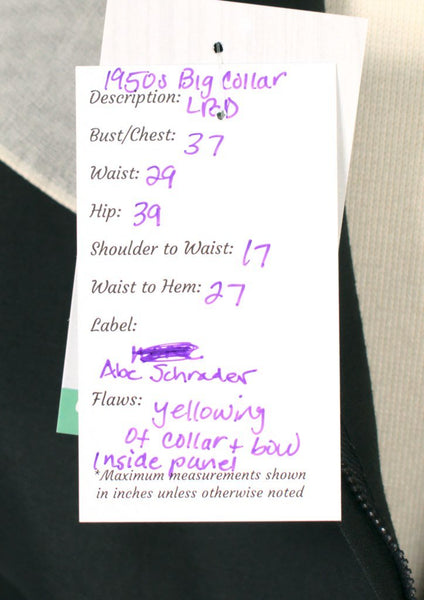 1950s Big Collar
Description: LBD
Bust/Chest: 37
Waist: 29
Hip: 39
Shoulder to Waist: 17
Waist to Hem: 27
Label:
Abe Schrader
Flaws: yellowing
of collar + bow
Inside panel
*Maximum measurements shown
in inches unless otherwise noted